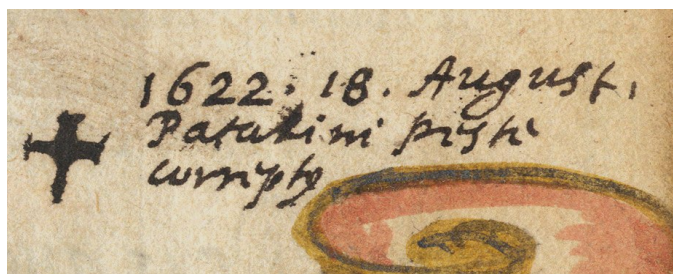 1622. 18. August.
Patakini peste
correptꝯ